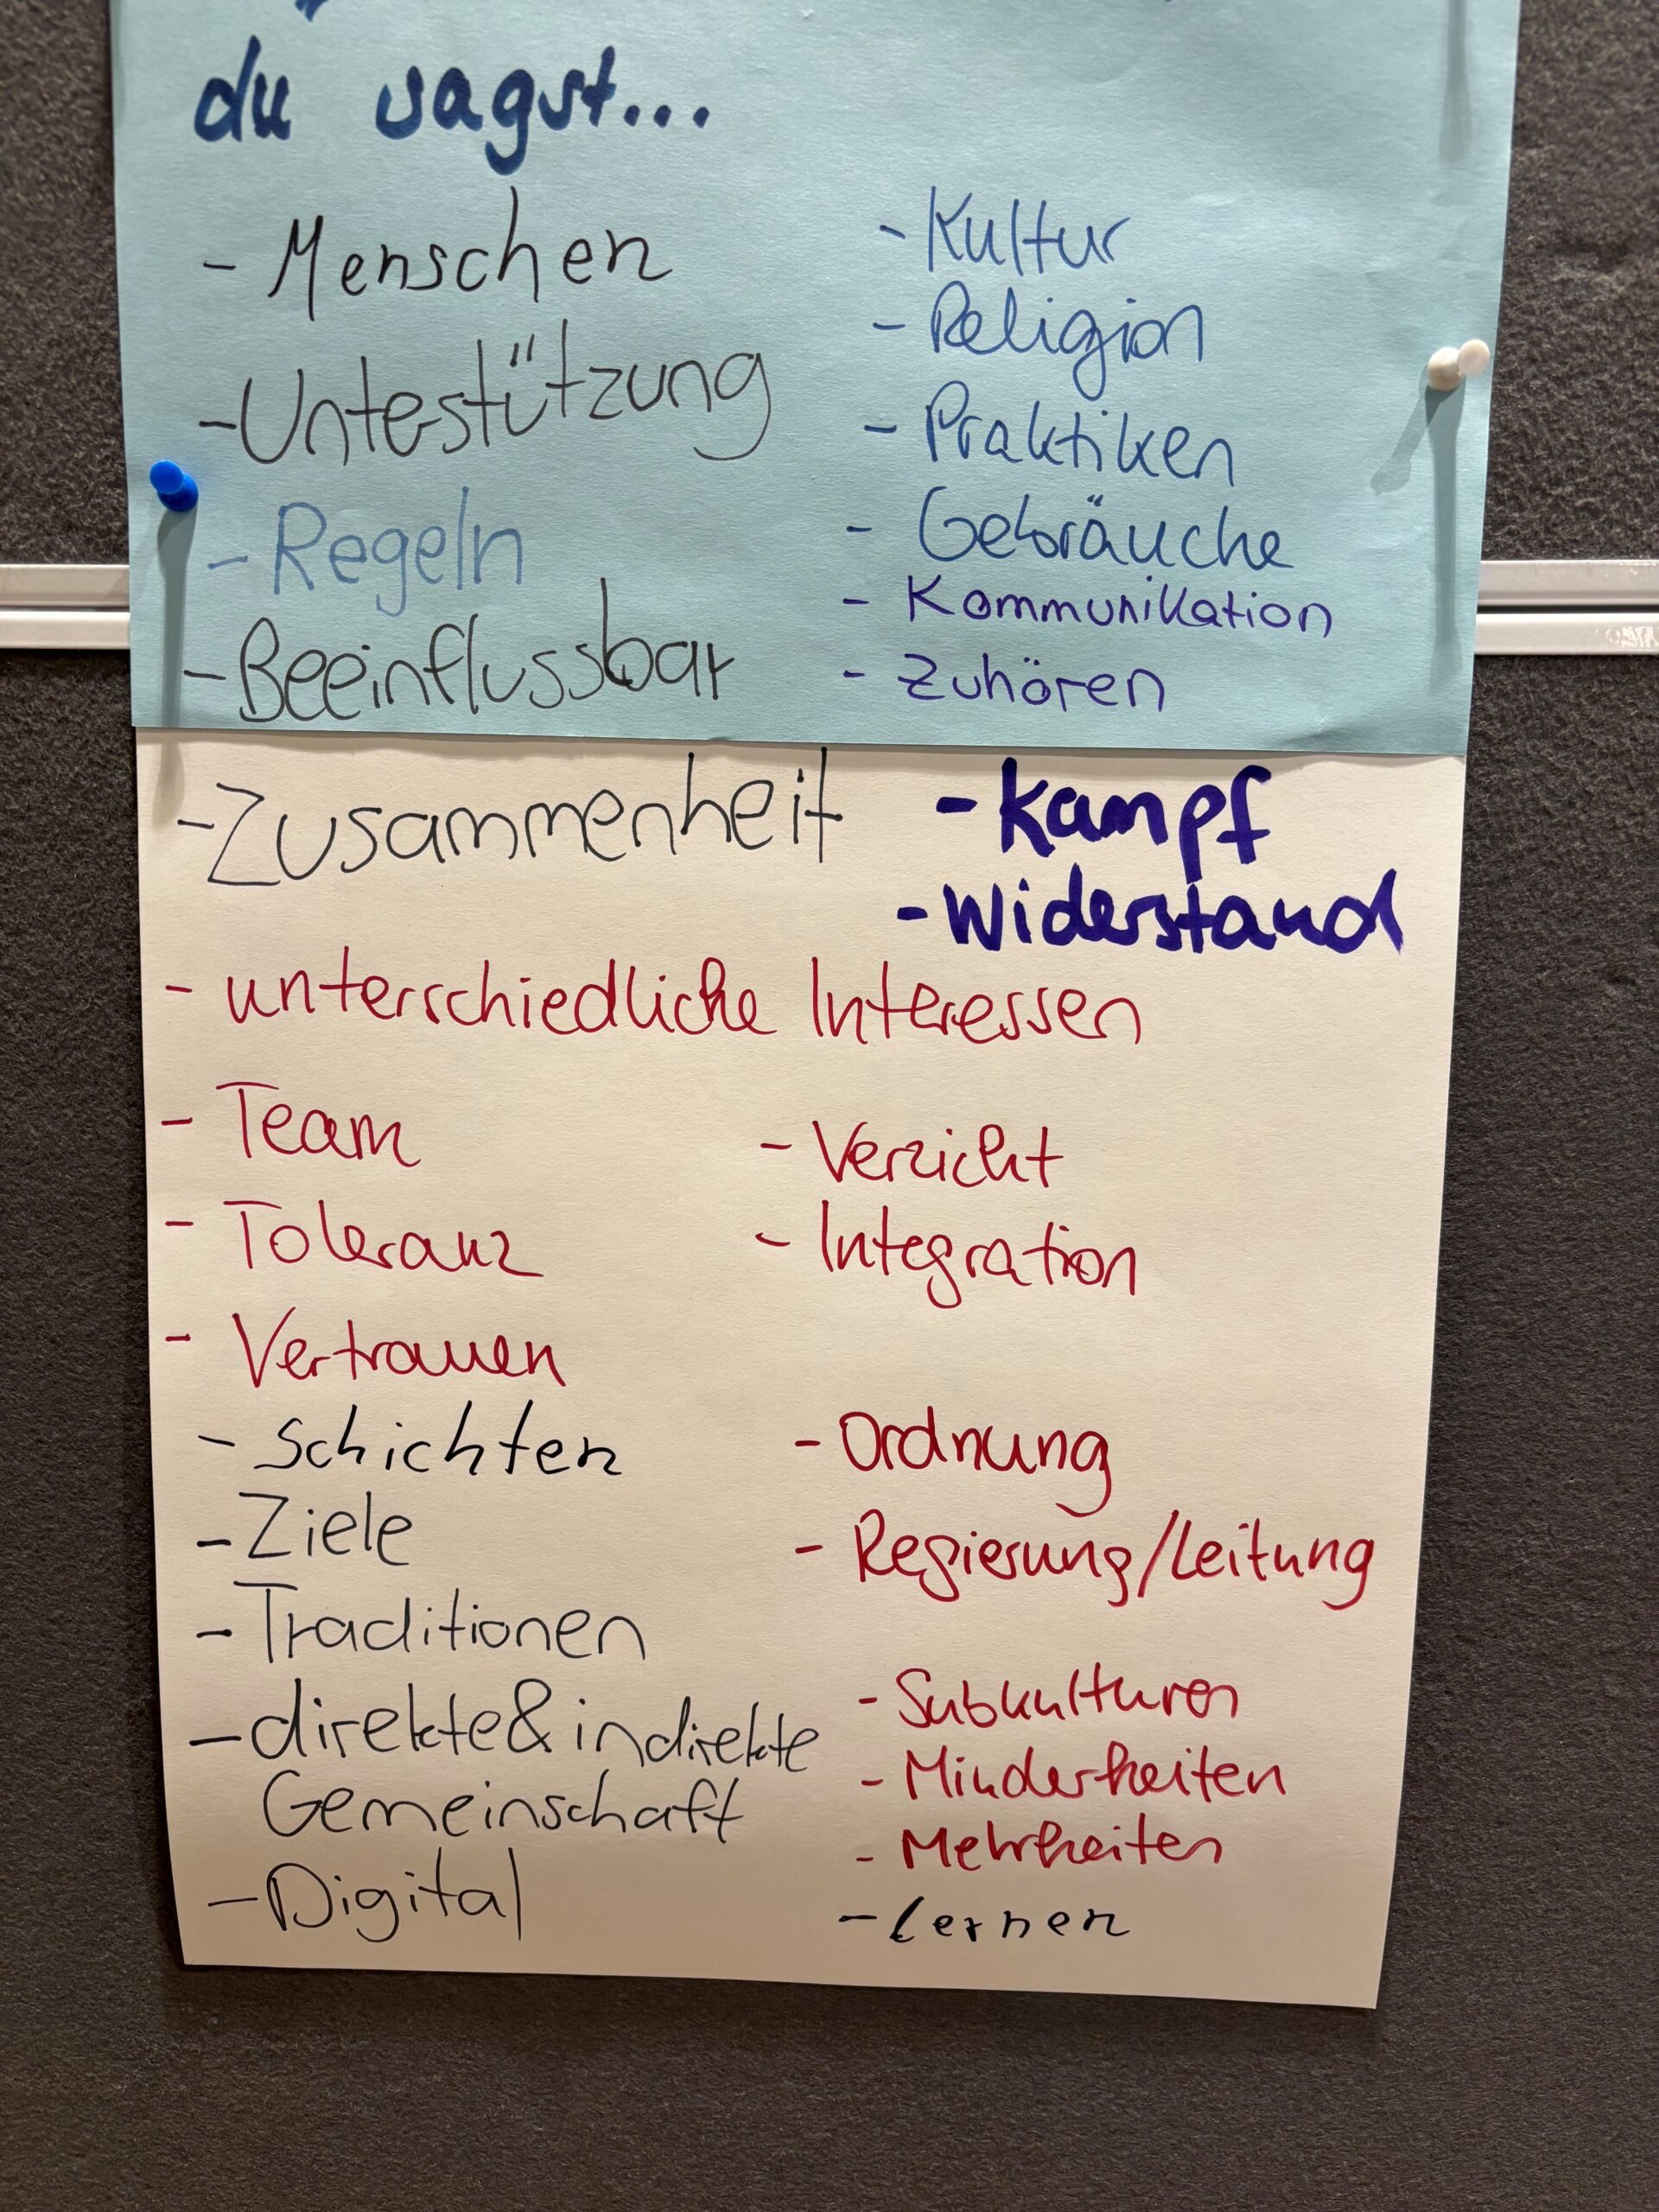 du sagst...
- Menschen
- Untestützung
- Regeln
- Beeinflussbar
- Kultur
- Religion
- Praktiken
- Gebräuche
- Kommunikation
- Zuhören
- Zusammenheit
- Kampf
- Widerstand
- unterschiedliche Interessen
- Team
- Toleranz
- Vertrauen
- Schichten
- Ziele
- Traditionen
- direkte & indirekte
Gemeinschaft
- Digital
- Verzicht
- Integration
- Ordnung
- Regierung/Leitung
- Subkulturen
- Minderheiten
- Mehrheiten
- Lernen